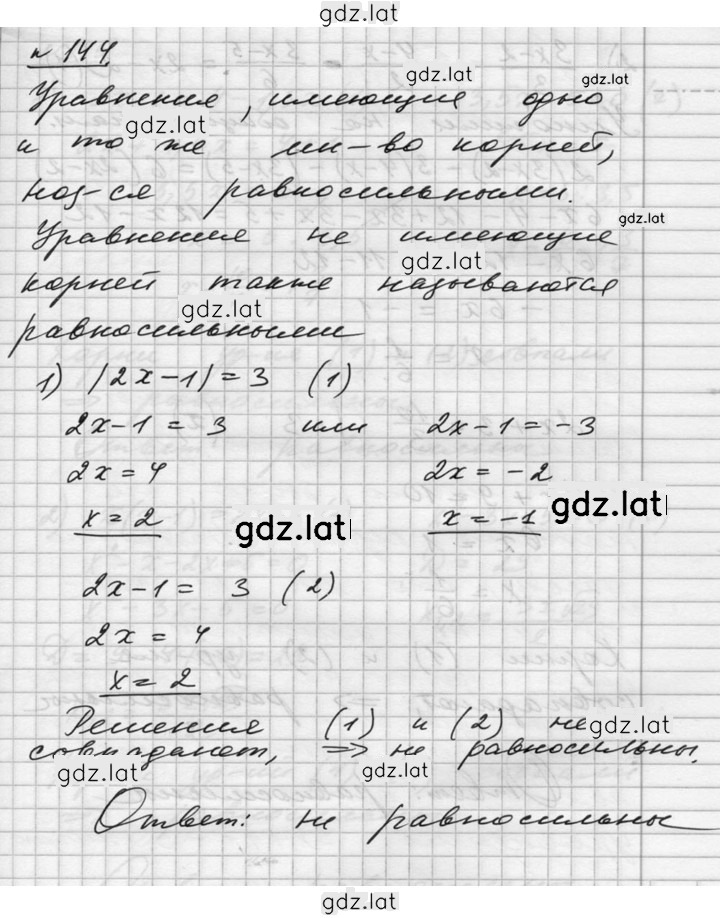 gdz.lat
n 144
gdz.lat gdz.lat
Уравнения, имеющие одно
gdz.lat
и то же мн-во корней,
наз-ся равносильными.
gdz.lat
Уравнения не имеющие
gdz.lat
корней также называются
gdz.lat
равносильными
1) |2x-1|=3 (1)
2x-1=3 или 2x-1=-3
2x=4 2x=-2
x=2 gdz.lat x=-1 gdz.lat
2x-1= 3 (2)
2x=4
x=2
Решения (1) и (2) не gdz.lat
совпадают, => не равносильны.
gdz.lat gdz.lat
Ответ: не равносильны
gdz.lat